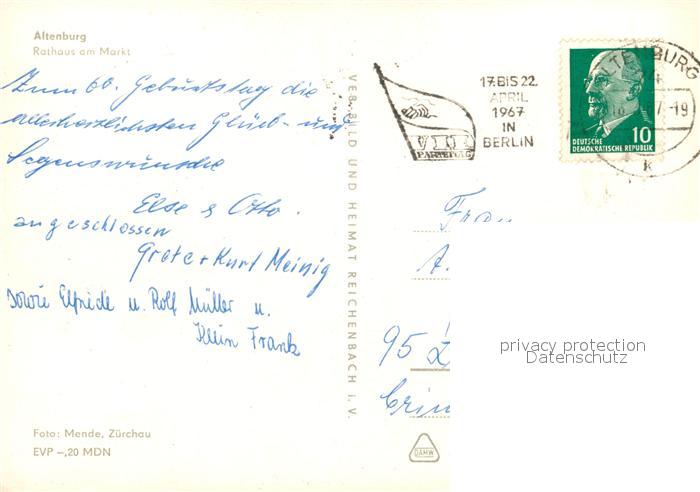 Altenburg
Rathaus am Markt
Zum 60. Geburtstag die
allerherzlichsten Glück- und
Segenswünsche
Else & Otto.
angeschlossen
Grete + Kurt Meinig
sowie Elfriede u. Rolf Müller u.
Klein Frank
Foto: Mende, Zürchau
EVP –,20 MDN
VEB BILD UND HEIMAT REICHENBACH i. V.
17. BIS 22.
APRIL
1967
IN
BERLIN
VII
PARTEITAG
ALTENBURG
-19
k
10
DEUTSCHE
DEMOKRATISCHE REPUBLIK
Frau
A.
95 Z
Crim
DAMW
privacy protection
Datenschutz